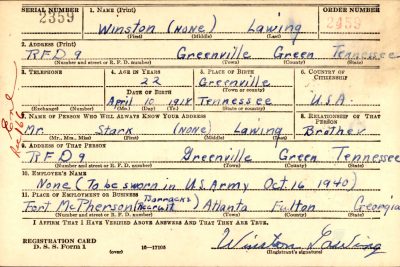 SERIAL NUMBER 1. NAME (Print) ORDER NUMBER
2359 Winston (None) Lawing 2459
(First) (Middle) (Last)
2. ADDRESS (Print)
RFD 9 Greenville Green Tennessee
(Number and street or R. F. D. number) (Town) (County) (State)
3. TELEPHONE 4. AGE IN YEARS 5. PLACE OF BIRTH 6. COUNTRY OF CITIZENSHIP
22 Greenville
DATE OF BIRTH (Town or county)
April 10 1918 Tennessee U.S.A.
(Exchange) (Number) (Mo.) (Day) (Yr.) (State or country)
7. NAME OF PERSON WHO WILL ALWAYS KNOW YOUR ADDRESS 8. RELATIONSHIP OF THAT PERSON
Mr. Stark (None) Lawing Brother
(Mr., Mrs., Miss) (First) (Middle) (Last)
9. ADDRESS OF THAT PERSON
RFD 9 Greenville Green Tennessee
(Number and street or R. F. D. number) (Town) (County) (State)
10. EMPLOYER'S NAME
None (To be sworn in U.S. Army Oct. 16 1940)
11. PLACE OF EMPLOYMENT OR BUSINESS
Fort McPherson (Recruit Barracks) Atlanta Fulton Georgia
(Number and street or R. F. D. number) (Town) (County) (State)
I AFFIRM THAT I HAVE VERIFIED ABOVE ANSWERS AND THAT THEY ARE TRUE.
REGISTRATION CARD
D. S. S. Form 1 (over) 16—17105 Winston Lawing
(Registrant's signature)